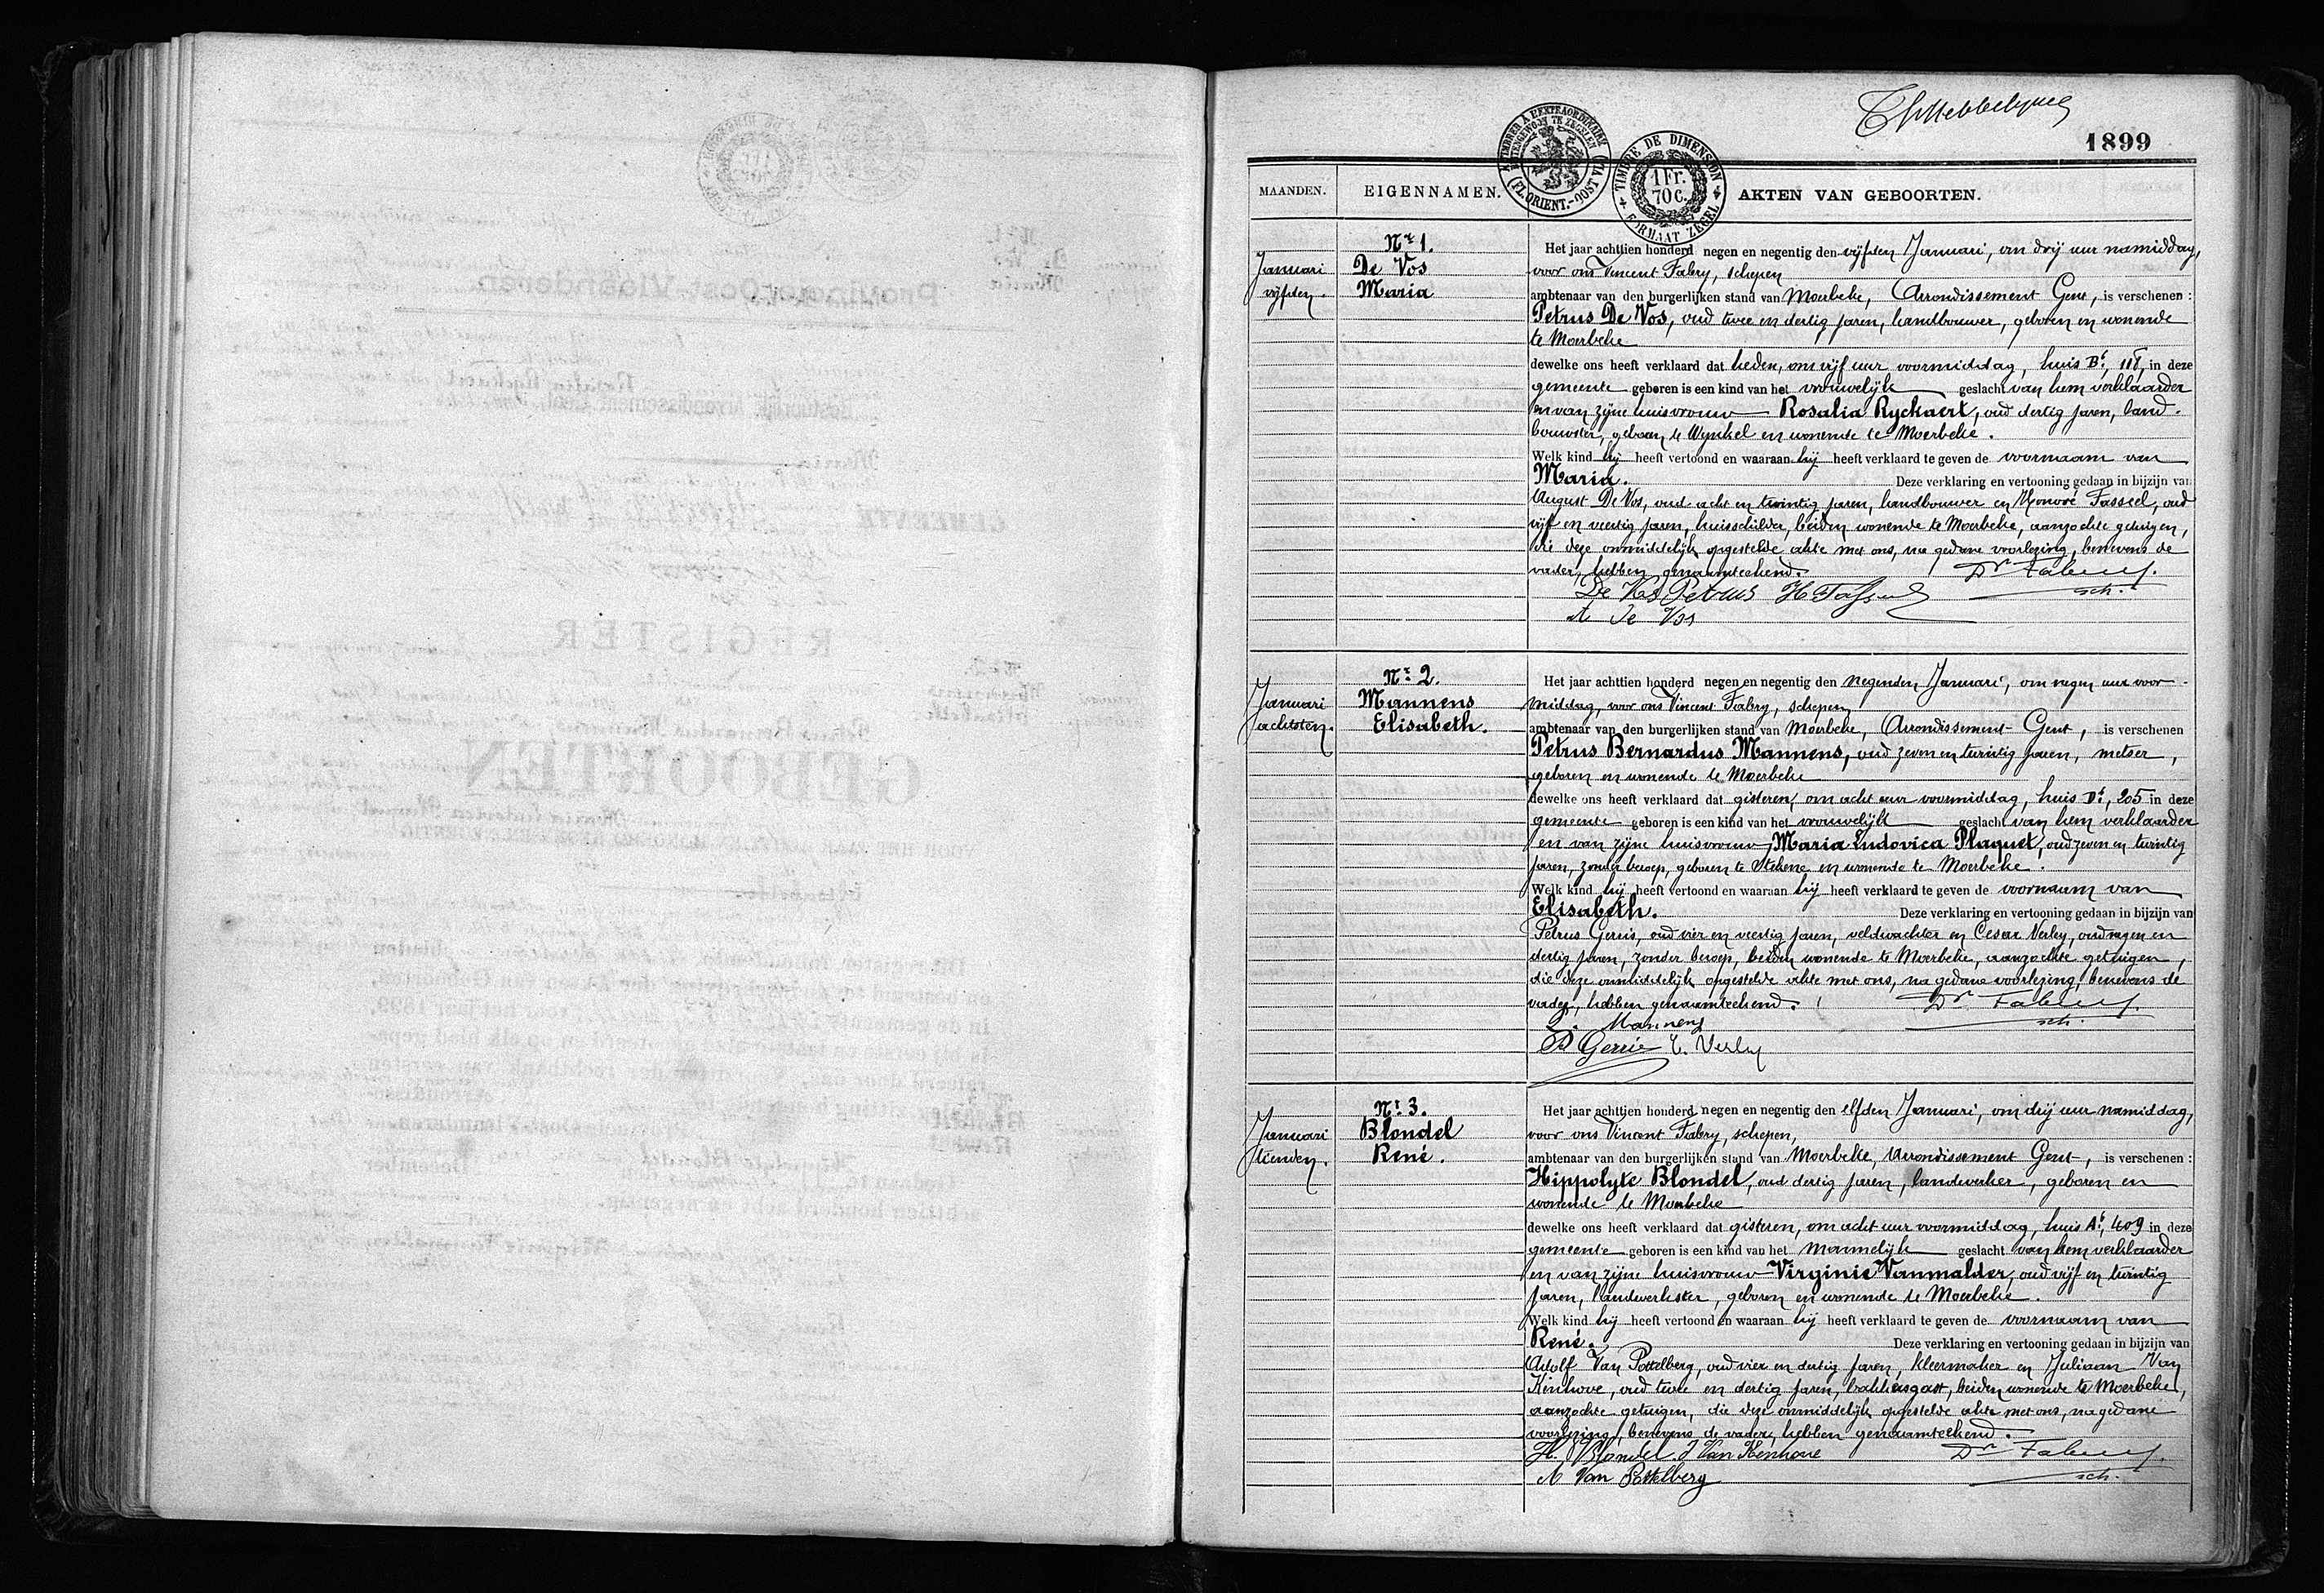 1899
TIMBRE DE DIMENSION
1 Fr.
70 C.
FORMAAT ZEGEL
MAANDEN.
EIGENNAMEN.
AKTEN VAN GEBOORTEN.
Januari
vijfden.
Nr 1.
De Vos
Maria
Het jaar achttien honderd negen en negentig den vijfden Januari, om drij uur namiddag,
voor ons Vincent Fabry, schepen
ambtenaar van den burgerlijken stand van Moerbeke, Arrondissement Gent, is verschenen :
Petrus De Vos, oud twee en dertig jaren, landbouwer, geboren en wonende
te Moerbeke
dewelke ons heeft verklaard dat heden, om vijf uur voormiddag, huis Br, 118, in deze
gemeente geboren is een kind van het vrouwelijk geslacht van hem verklaarder
en van zijne huisvrouw Rosalia Ryckaert, oud dertig jaren, land-
bouwster, geboren te Wynkel en wonende te Moerbeke.
Welk kind hij heeft vertoond en waaraan hij heeft verklaard te geven de voornaam van
Maria. Deze verklaring en vertooning gedaan in bijzijn van
August De Vos, oud acht en twintig jaren, landbouwer en Honoré Tasseel, oud
vijf en veertig jaren, huisschilder, beiden wonende te Moerbeke, aanzochte getuigen,
die deze onmiddelijk opgestelde akte met ons, na gedane voorlezing, benevens de
vader, hebben genaamteekend. Dr Fabry.
De Vos Petrus H Tasseel sch.
A De Vos
Januari
achtsten.
Nr 2.
Mannens
Elisabeth.
Het jaar achttien honderd negen en negentig den negenden Januari, om negen uur voor-
middag, voor ons Vincent Fabry, schepen
ambtenaar van den burgerlijken stand van Moerbeke, Arrondissement Gent, is verschenen
Petrus Bernardus Mannens, oud zeven en twintig jaren, metser,
geboren en wonende te Moerbeke
dewelke ons heeft verklaard dat gisteren, om acht uur voormiddag, huis Dr, 205 in deze
gemeente geboren is een kind van het vrouwelijk geslacht van hem verklaarder
en van zijne huisvrouw, Maria Ludovica Plaquet, oud zeven en twintig
jaren, zonder beroep, geboren te Stekene en wonende te Moerbeke.
Welk kind hij heeft vertoond en waaraan hij heeft verklaard te geven de voornaam van
Elisabeth. Deze verklaring en vertooning gedaan in bijzijn van
Petrus Gerris, oud vier en veertig jaren, veldwachter en Cesar Verley, oud negen en
dertig jaren, zonder beroep, beiden wonende te Moerbeke, aanzochte getuigen,
die deze onmiddelijk opgestelde akte met ons, na gedane voorlezing, benevens de
vader, hebben genaamteekend. Dr Fabry.
Mannens sch.
P Gerris C. Verley
Januari
tienden.
Nr 3.
Blondel
René.
Het jaar achttien honderd negen en negentig den elfden Januari, om drij uur namiddag,
voor ons Vincent Fabry, schepen,
ambtenaar van den burgerlijken stand van Moerbeke, Arrondissement Gent, is verschenen :
Hippolyte Blondel, oud dertig jaren, landwerker, geboren en
wonende te Moerbeke
dewelke ons heeft verklaard dat gisteren, om acht uur voormiddag, huis Ar, 409 in deze
gemeente geboren is een kind van het mannelijk geslacht van hem verklaarder
en van zijne huisvrouw Virginie Vanmalder, oud vijf en twintig
jaren, landwerkster, geboren en wonende te Moerbeke.
Welk kind hij heeft vertoond en waaraan hij heeft verklaard te geven de voornaam van
René. Deze verklaring en vertooning gedaan in bijzijn van
Adolf Van Pottelberg, oud vier en dertig jaren, kleermaker en Juliaan Van
Kenhove, oud twee en dertig jaren, bakkersgast, beiden wonende te Moerbeke,
aanzochte getuigen, die deze onmiddelijk opgestelde akte met ons, na gedane
voorlezing, benevens de vader, hebben genaamteekend.
H. Blondel J Van Kenhove Dr Fabry.
A Van Pottelberg sch.